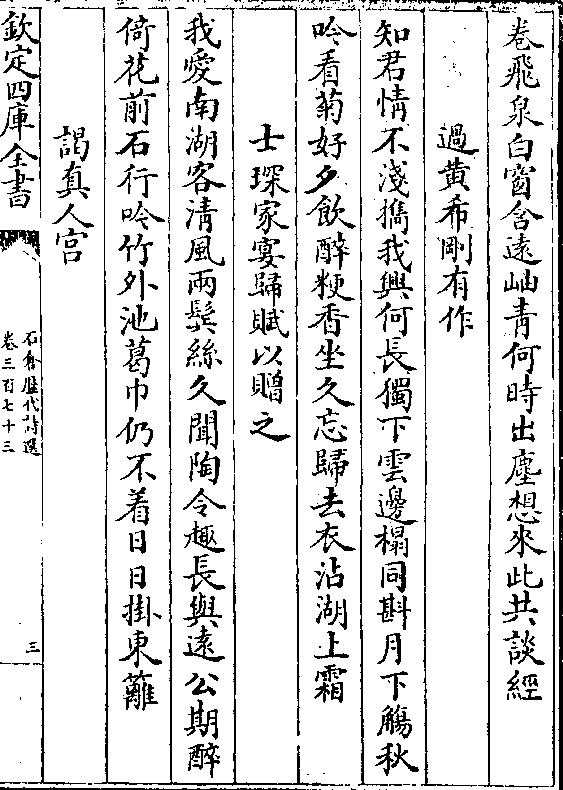 卷飛泉白窗含遠岫青何時出塵想來此共談經
過黄希剛有作
知君情不淺擕我興何長獨下雲邊榻同斟月下觴秋
吟看菊好夕飲醉粳香坐久忘歸去衣沾湖上霜
士琛家宴歸賦以贈之
我愛南湖客清風兩鬂絲久聞陶令趣長與遠公期醉
倚花前石行吟竹外池葛巾仍不着日日掛東籬
謁真人宫
欽定四庫全書
石倉歴代詩選
卷三百七十三
三